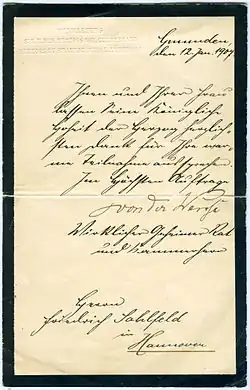 Gmunden,
den 12. Jan. 1907
Ihnen und Ihrer Frau
lassen Seine Königliche
Hoheit der Herzog herzlich-
sten Dank für Ihre war-
me Teilnahme aussprechen
Im Höchsten Auftrage
von der
Wirklicher Geheimer Rat
und Kammerherr
Herrn
Friedrich Sahlfeld
in
Hannover